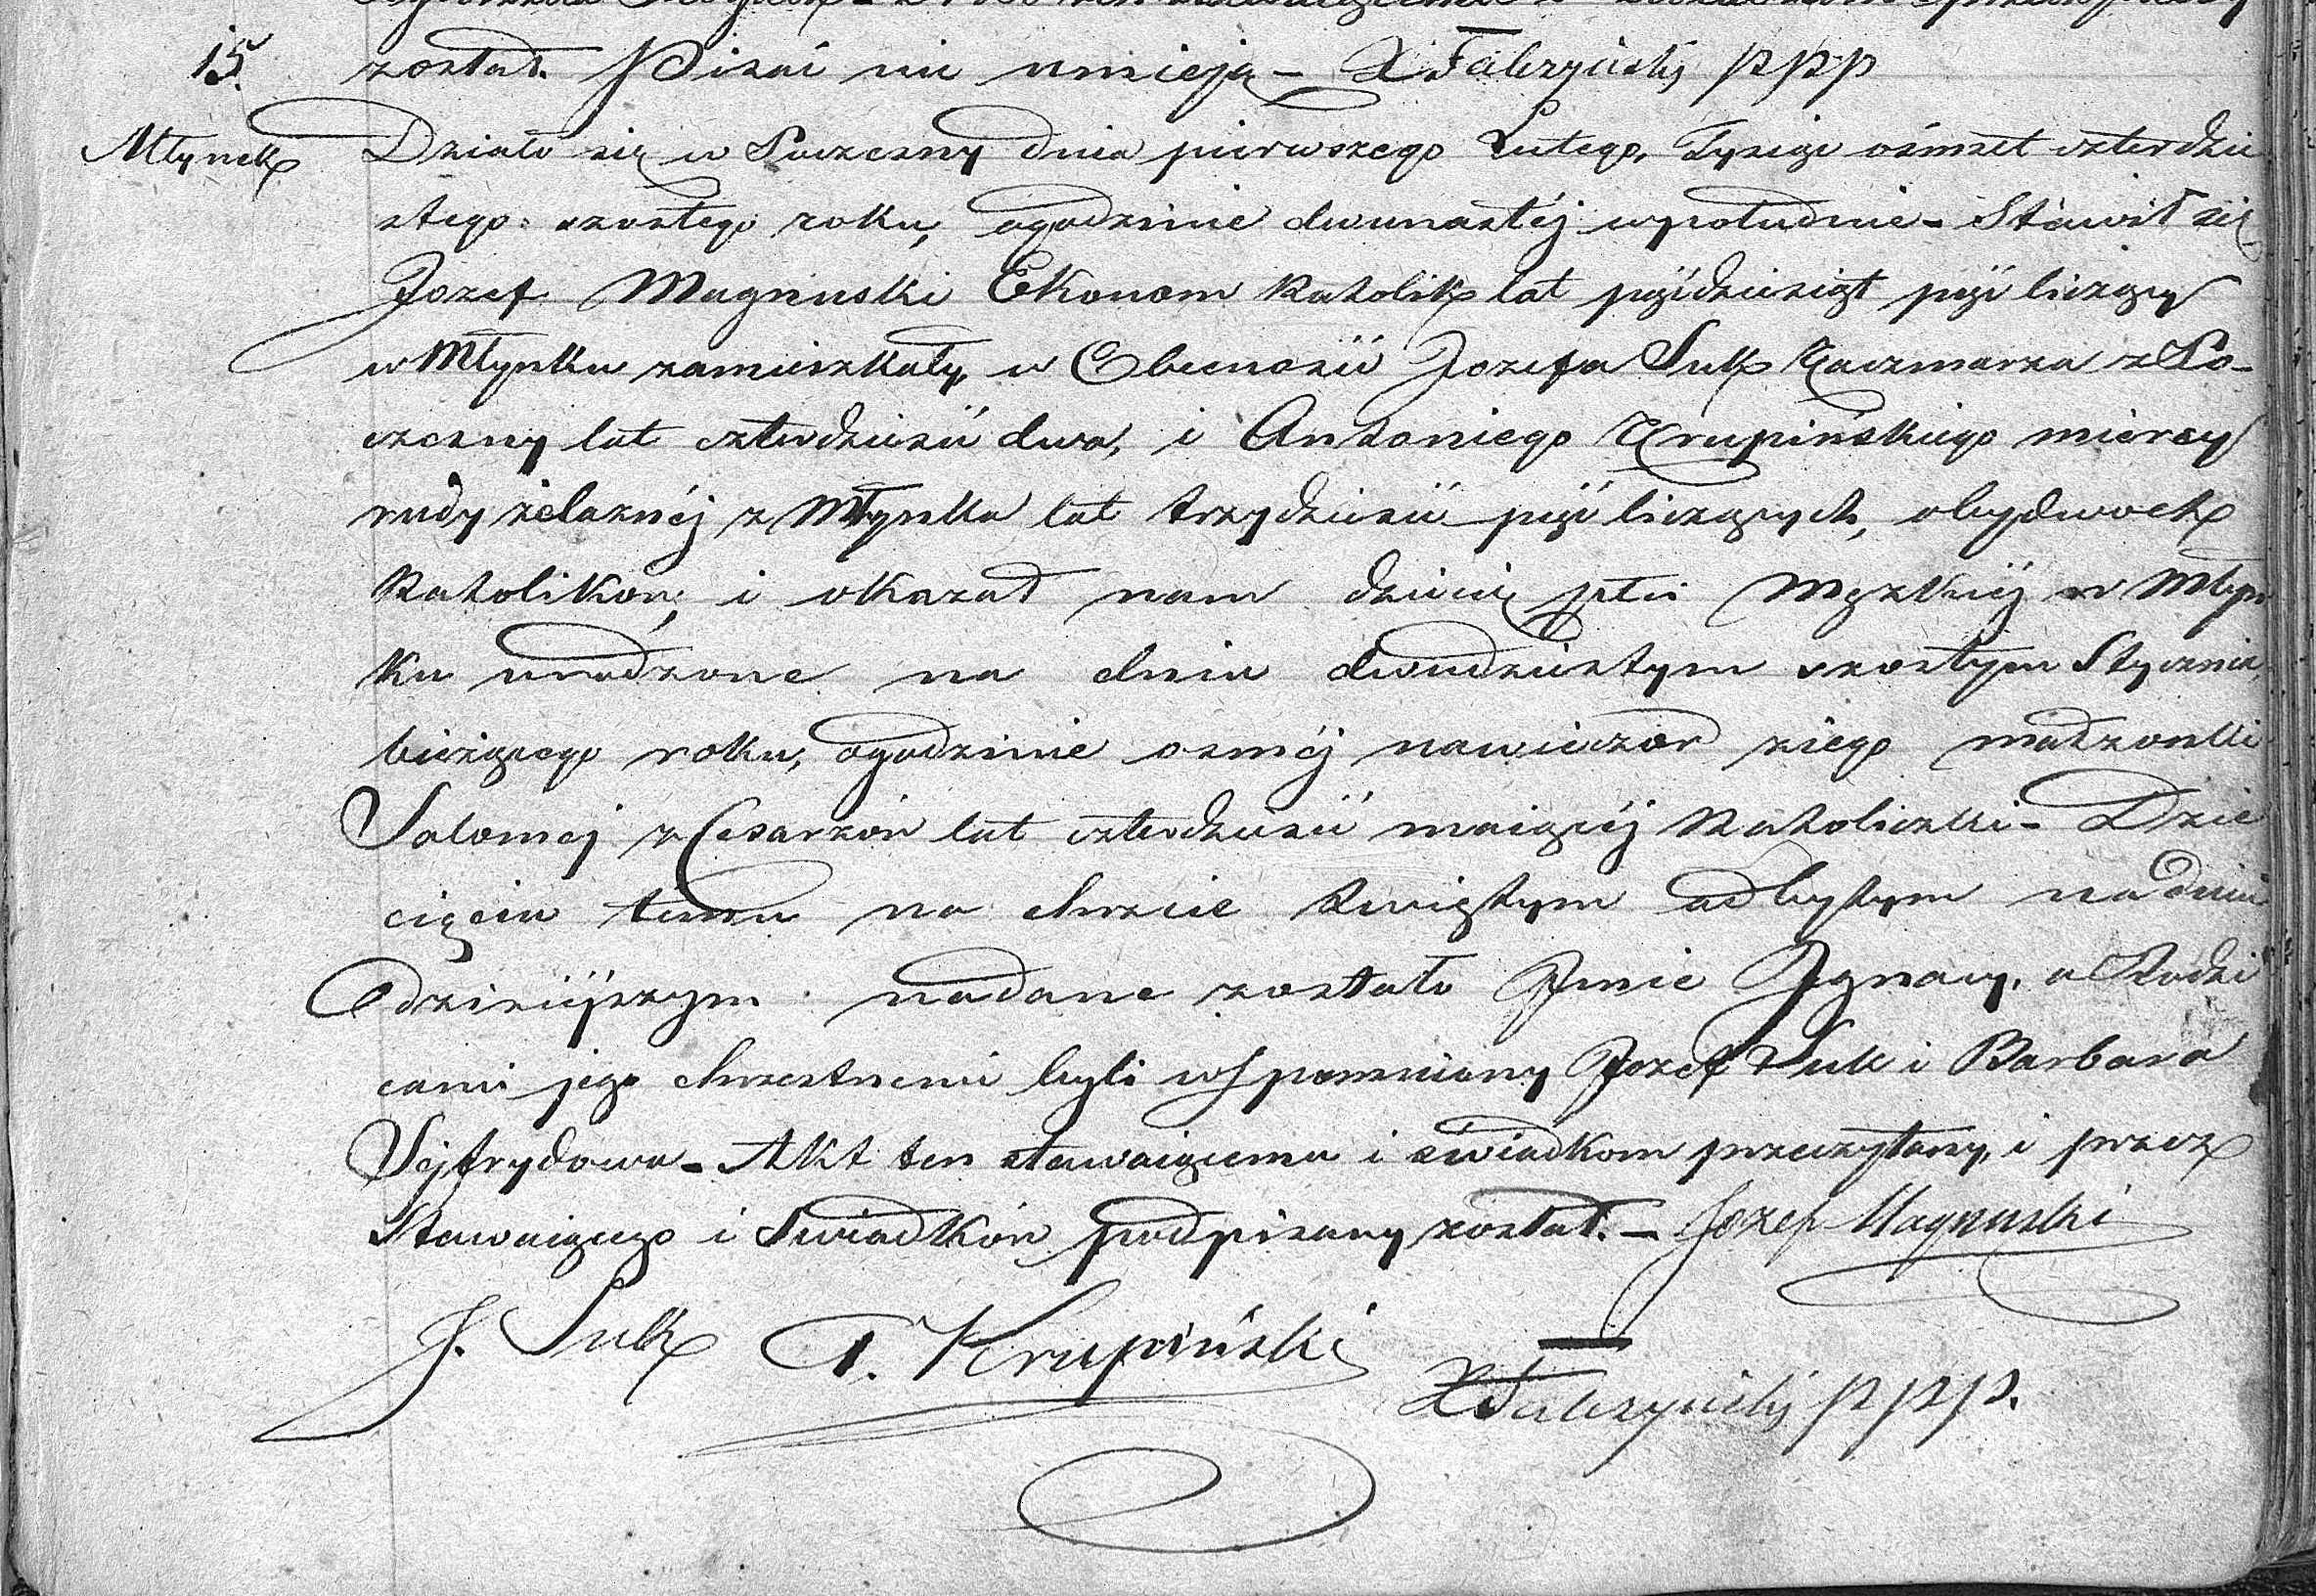 15.
został. Pisać nie umieją – X Falczyński ppp
Młynek
Działo się w Poczesny dnia pierwszego Lutego, Tysiąc ośmset czterdzie
stego szostego roku, ogodzinie dwunastéj wpołudnie – Stawił się
Jozef Magnuski Ekonom Katolik lat pięćdziesiąt pięć liczący
w Młynku zamieszkały, w Obecności Jozefa Suk Kaczmarza z Po-
czesny lat czterdzieści dwa, i Antoniego Krupińskiego miercy
rudy żelaznéj z Młynka lat trzydzieści pięć liczących, obydwoch
Katolikow, i okazał nam dziecię płci Męzkiéj w Młyn
ku urodzone na dniu dwudziestym szostym Stycznia,
bieżącego roku, ogodzinie osméj nawieczor ziego małzonki
Salomej z Cesarzow lat czterdzieści maiącéj Katoliczki – Dzie
cięciu temu na chrzcie Swiętym odbytym na dniu
dzisiéjszym nadane zostało Jmie Jgnacy, a Rodzi
cami jego chrzestnemi byli wspomniony Jozef Suk i Barbara
Sejfrydowa – Akt ten stawaiącemu i swiadkom przeczytany, i przez
Stawaiącego i Swiadków podpisany został. – Jozef Magnuski
J. Suk A. Krupiński
X Falczyński ppp.